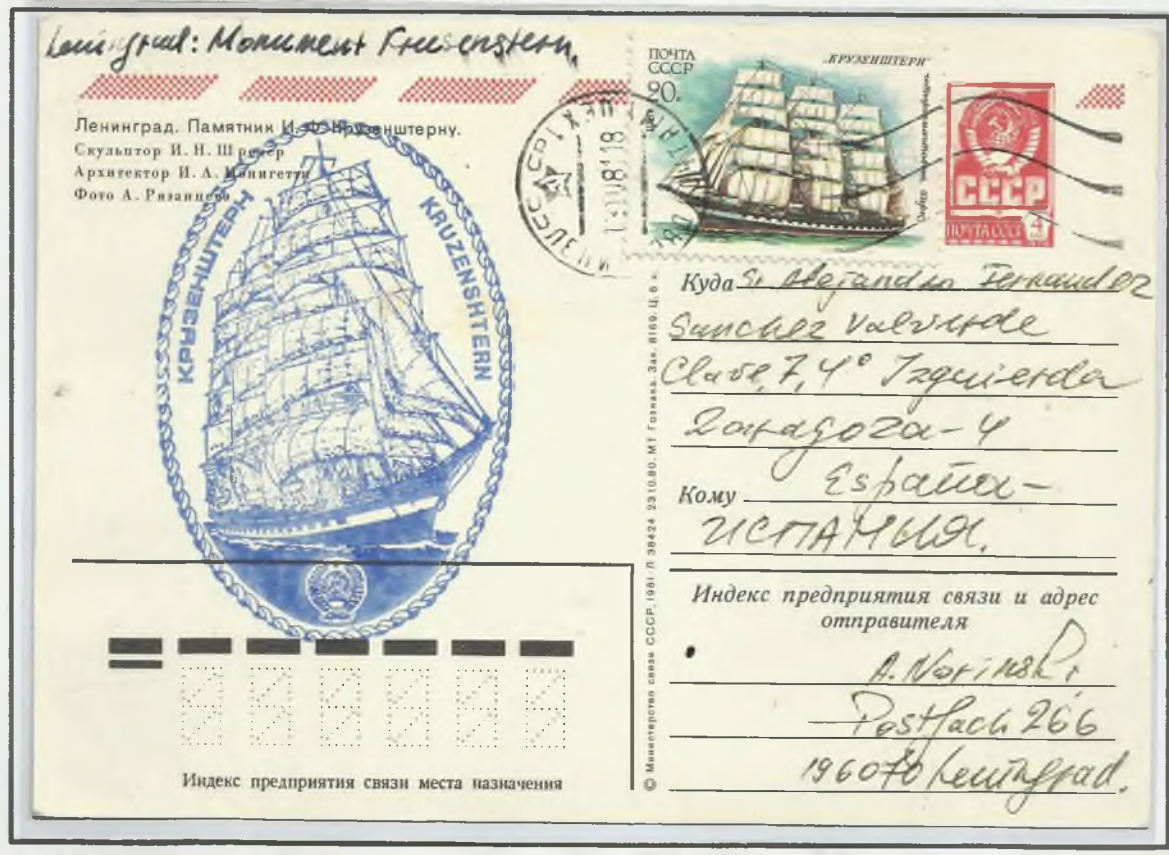 Leningrad: Monument Krusenstern.
ПОЧТА
СССР
20 к.
„КРУЗЕНШТЕРН"
Ленинград. Памятник И. Ф. Крузенштерну.
Скульптор И. Н. Шредер
Архитектор И. А. Монигетти
Фото А. Рязанцева
КРУЗЕНШТЕРН
KRUZENSHTERN
СССР
ПОЧТА СССР
4
Куда Sr Alejandro Fernandez
Sanchez Valverde
Clave, 7, 4° Izquierda
Zaragoza-4
Кому España-
ИСПАНИЯ.
Индекс предприятия связи и адрес
отправителя
A. Norinski
Postfach 266
196070 Leningrad.
Индекс предприятия связи места назначения
© Министерство связи СССР, 1981. Л 38424 23.10.80. МТ Гознака. Зак. 8169. Ц. 8 к.